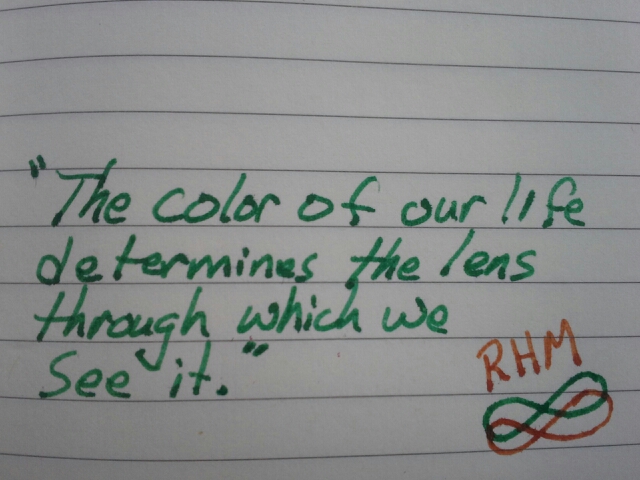 "The color of our life
determines the lens
through which we
see it."
RHM